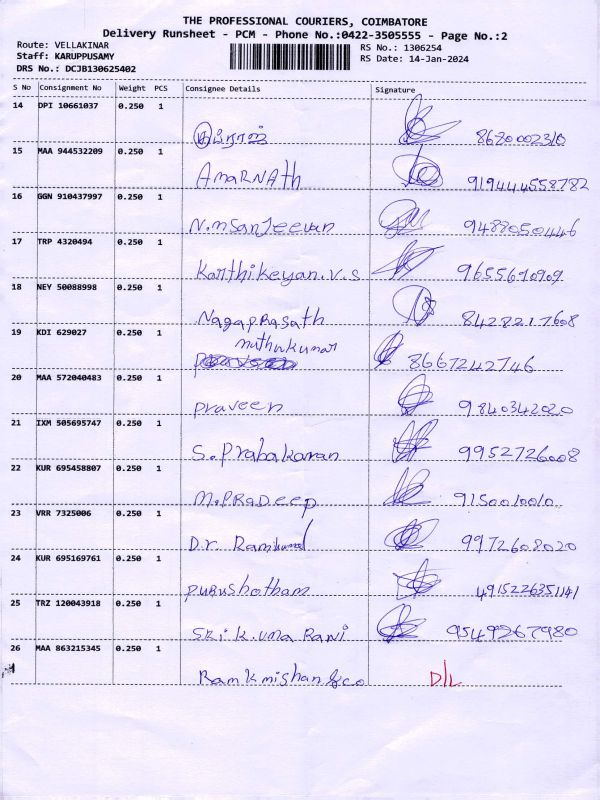 THE PROFESSIONAL COURIERS, COIMBATORE
Delivery Runsheet - PCM - Phone No.:0422-3505555 - Page No.:2
Route: VELLAKINAR RS No.: 1306254
Staff: KARUPPUSAMY RS Date: 14-Jan-2024
DRS No.: DCJB130625402
S No Consignment No Weight PCS Consignee Details Signature
14 DPI 10661037 0.250 1
8680002310
15 MAA 944532209 0.250 1
AmaRNAth 919444558782
16 GGN 910437997 0.250 1
N.m Sanjeevan 9488050446
17 TRP 4320494 0.250 1
Karthikeyan.V.S 9655690909
18 NEY 50088998 0.250 1
NagaPRasath 8428217608
19 KDI 629027 0.250 1
muthukumar
8667242746
20 MAA 572040483 0.250 1
Praveen 9840342020
21 IXM 505695747 0.250 1
S.Prabakaran 9952726008
22 KUR 695458807 0.250 1
M.PRaDeep 9150010010
23 VRR 7325006 0.250 1
D.r. Ramkumar 9972608020
24 KUR 695169761 0.250 1
Purushotham 4915226351141
25 TRZ 120043918 0.250 1
SRi K.uma Rani 9549267980
26 MAA 863215345 0.250 1
Ramkrishan & co D/L